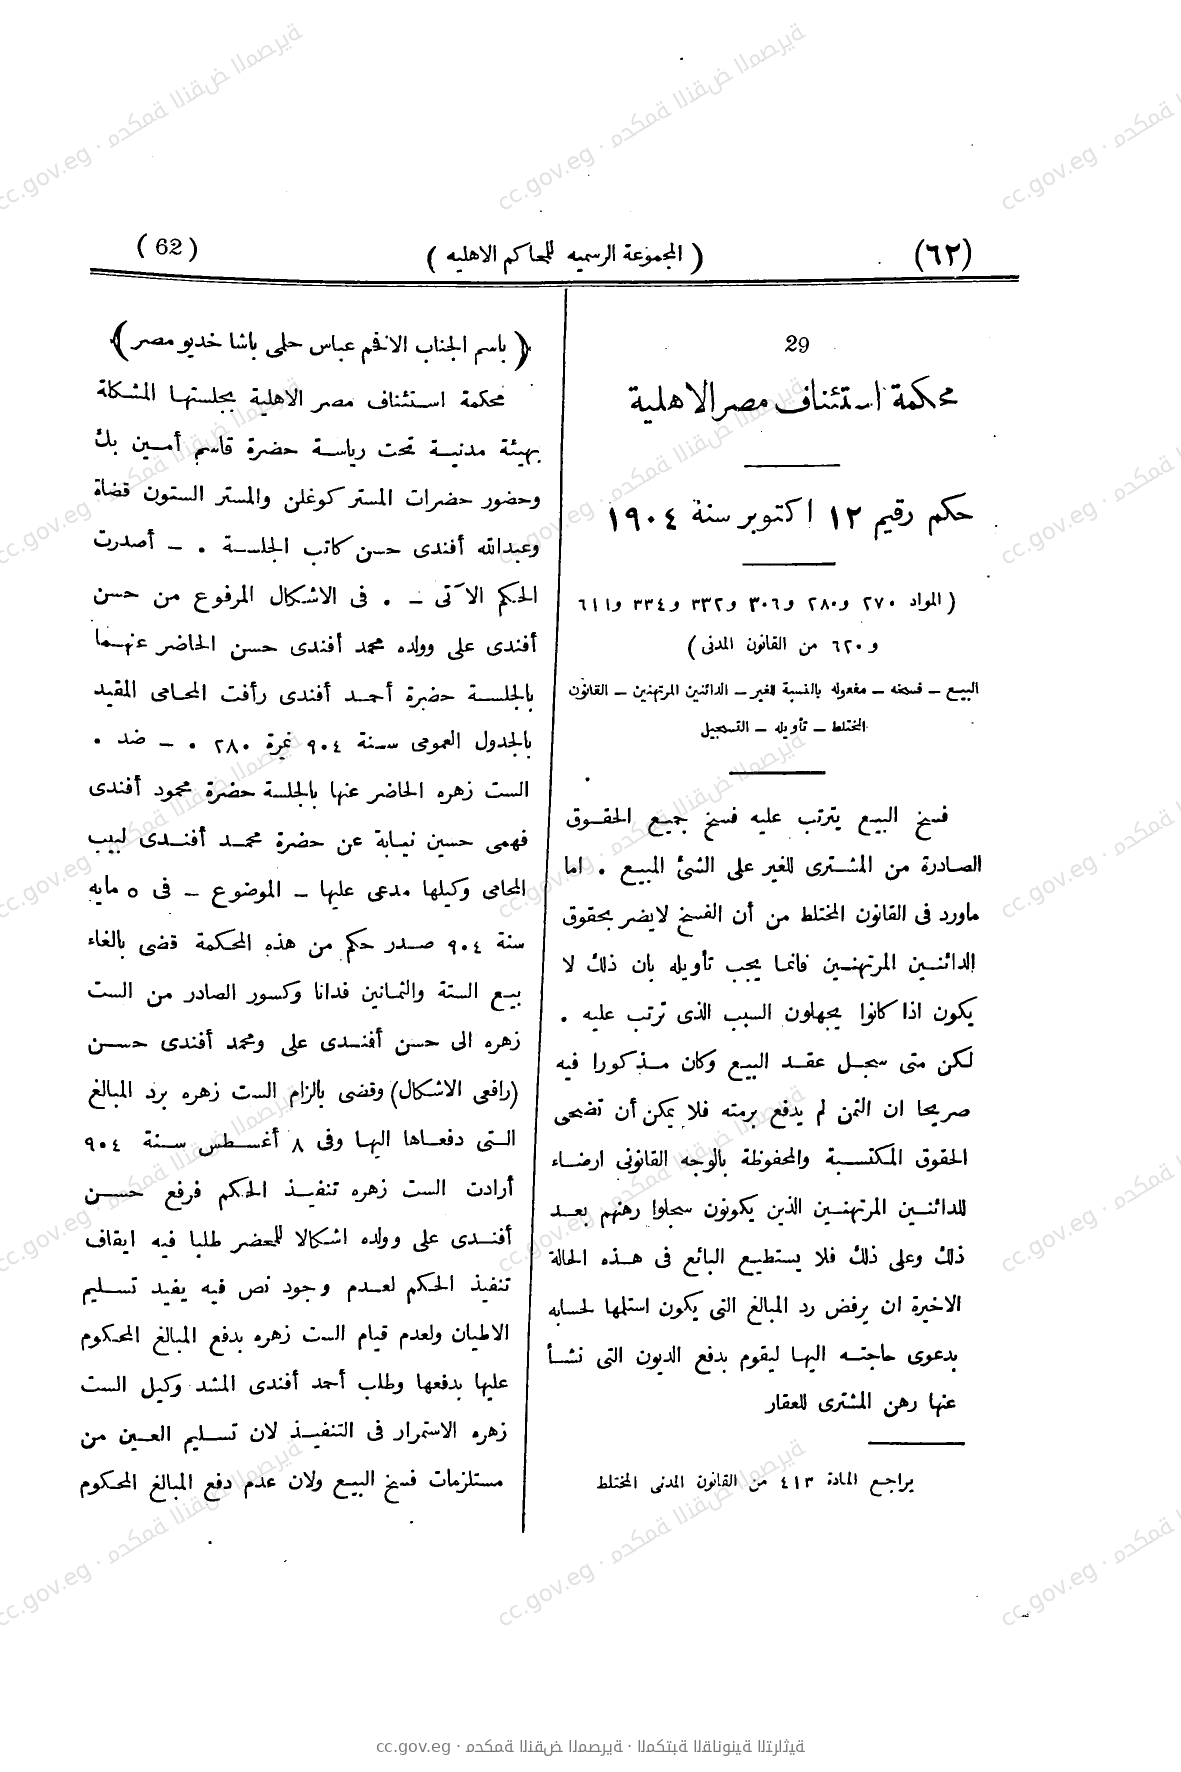 (٦٢)
( المجموعة الرسميه للمحاكم الاهليه )
( 62 )
29
محكمة استئناف مصر الاهلية
حكم رقيم ١٢ اكتوبر سنة ١٩٠٤
( المواد ٢٧٠ و٢٨٠ و٣٠٦ و٣٣٢ و٣٣٤ و٦١١
و ٦٢٠ من القانون المدنى )
البيع – فسخه – مفعوله بالنسبة للغير – الدائنين المرتهنين – القانون
المختلط – تأويله – التسجيل
فسخ البيع يترتب عليه فسخ جميع الحقوق
الصادرة من المشترى للغير على الشئ المبيع . اما
ماورد فى القانون المختلط من أن الفسخ لايضر بحقوق
الدائنين المرتهنين فانما يجب تأويله بان ذلك لا
يكون اذا كانوا يجهلون السبب الذى ترتب عليه .
لكن متى سجل عقد البيع وكان مذكورا فيه
صريحا ان الثمن لم يدفع برمته فلا يمكن أن تضحى
الحقوق المكتسبة والمحفوظة بالوجه القانونى ارضاء
للدائنين المرتهنين الذين يكونون سجلوا رهنهم بعد
ذلك وعلى ذلك فلا يستطيع البائع فى هذه الحالة
الاخيرة ان يرفض رد المبالغ التى يكون استلمها لحسابه
بدعوى حاجته اليها ليقوم بدفع الديون التى نشأ
عنها رهن المشترى للعقار
يراجع المادة ٤١٣ من القانون المدنى المختلط
﴿ باسم الجناب الافخم عباس حلمى باشا خديو مصر ﴾
محكمة استئناف مصر الاهلية بجلستها المشكلة
بهيئة مدنية تحت رياسة حضرة قاسم أمين بك
وحضور حضرات المستر كوغلن والمستر الستون قضاة
وعبدالله أفندى حسن كاتب الجلسة . – أصدرت
الحكم الآتى – . فى الاشكال المرفوع من حسن
أفندى على وولده محمد أفندى حسن الحاضر عنهما
بالجلسة حضرة أحمد أفندى رأفت المحامى المقيد
بالجدول العمومى سنة ٩٠٤ نمرة ٢٨٠ . – ضد .
الست زهره الحاضر عنها بالجلسة حضرة محمود أفندى
فهمى حسين نيابة عن حضرة محمد أفندى لبيب
المحامى وكيلها مدعى عليها – الموضوع – فى ٥ مايه
سنة ٩٠٤ صدر حكم من هذه المحكمة قضى بالغاء
بيع الستة والثمانين فدانا وكسور الصادر من الست
زهره الى حسن أفندى على ومحمد أفندى حسن
(رافعى الاشكال) وقضى بالزام الست زهره برد المبالغ
التى دفعاها اليها وفى ٨ أغسطس سنة ٩٠٤
أرادت الست زهره تنفيذ الحكم فرفع حسن
أفندى على وولده اشكالا للمحضر طلبا فيه ايقاف
تنفيذ الحكم لعدم وجود نص فيه يفيد تسليم
الاطيان ولعدم قيام الست زهره بدفع المبالغ المحكوم
عليها بدفعها وطلب أحمد أفندى المشد وكيل الست
زهره الاستمرار فى التنفيذ لان تسليم العين من
مستلزمات فسخ البيع ولان عدم دفع المبالغ المحكوم
cc.gov.eg · محكمة النقض المصرية · المكتبة القانونية التراثية